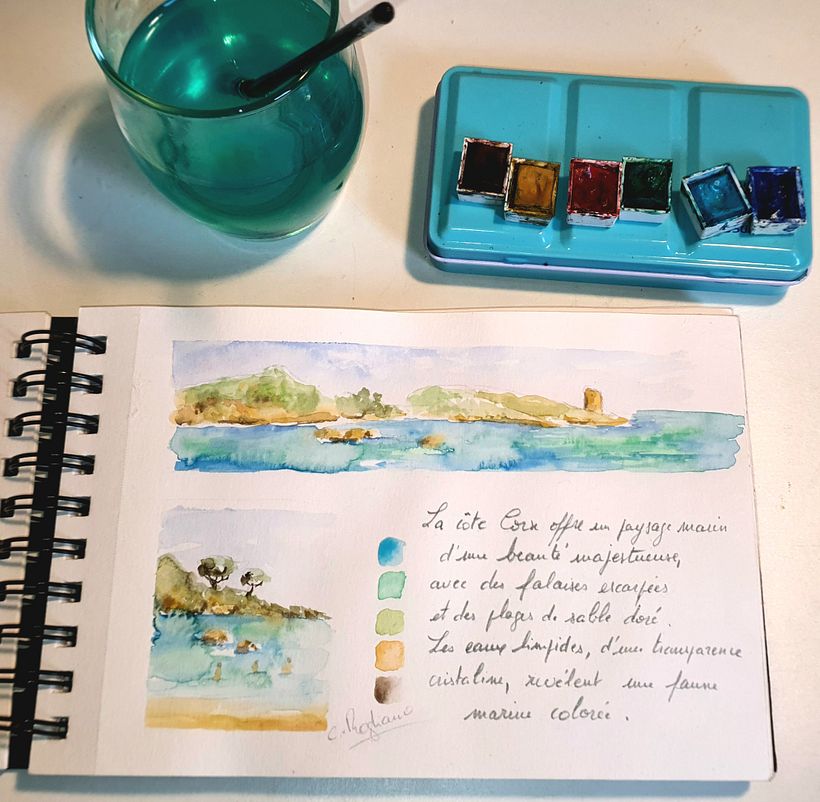 La côte Corse offre un paysage marin
d'une beauté majestueuse,
avec des falaises escarpées
et des plages de sable doré.
Les eaux limpides, d'une transparence
cristaline, révèlent une faune
marine colorée.